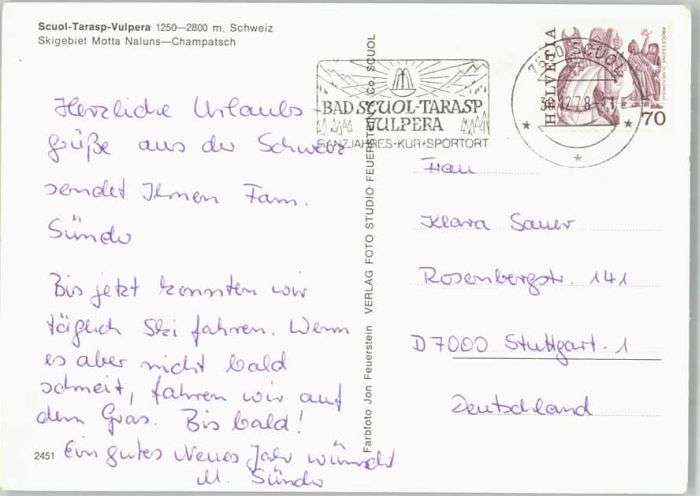 Scuol-Tarasp-Vulpera 1250—2800 m, Schweiz
Skigebiet Motta Naluns—Champatsch
Herzliche Urlaubs
grüße aus der Schweiz
sendet Ihnen Fam.
Sündo
Bis jetzt konnten wir
täglich Ski fahren. Wenn
es aber nicht bald
schneit, fahren wir auf
dem Gras. Bis bald!
Ein gutes Neues Jahr wünscht
M. Sündo
2451
Farbfoto Jon Feuerstein VERLAG FOTO STUDIO FEUERSTEIN & Co. SCUOL
BAD SCUOL-TARASP
VULPERA
GANZJAHRES-KUR+SPORTORT
7550 SCUOL
HELVETIA
70
Frau
Klara Sauer
Rosenbergstr. 141
D7000 Stuttgart. 1
Deutschland